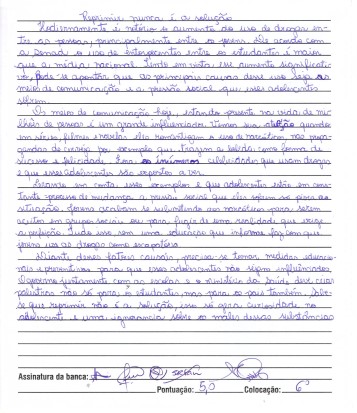 Reprimir nunca é a solução
Hodiernamente é notório o aumento do uso de drogas en-
tre as pessoas, principalmente entre os jovens. De acordo com
a Senad o uso de entorpecentes entre os estudantes é maior
que a média nacional. Tendo em vista esse aumento significati-
vo, pode-se apontar que as principais causas desse uso seja os
meios de comunicação e a pressão social que esses adolescentes
sofrem.
Os meios de comunicação hoje, estando presente na vida de mi-
lhões de pessoas é um grande influenciador. Vemos sua atuação quando
em séries, filmes e novelas eles romantizam o uso de narcóticos, nas propa-
gandas de cerveja por exemplo que trazem a bebida como forma de
sucesso e felicidade. Fora os inúmeros celebridades que usam drogas
e que esses adolescentes são expostos a ver.
Levando em conta esses exemplos e que adolescentes estão em cons-
tante processo de mudança a pressão social que eles sofrem se piora as
situações, jovens acabam se submetendo aos narcóticos para serem
aceitos em grupos sociais ou para fugir de uma realidade que exige
a perfeição. Tudo isso sem uma educação que informe faz com que
jovens usem as drogas como escapatória.
Diante desses fatores causais, precisa-se tomar medidas educacio-
nais e preventivas para que esses adolescentes não sejam influenciados.
O governo juntamente com as escolas e o ministério da Saúde deve criar
palestras não só para os estudantes, mas para os pais também. Sabe-
se que reprimir não é a solução, isso só gera curiosidade no
adolescente e uma ignorância sobre os males dessas substâncias.
Assinatura da banca:
Pontuação: 5,0 Colocação: 6º